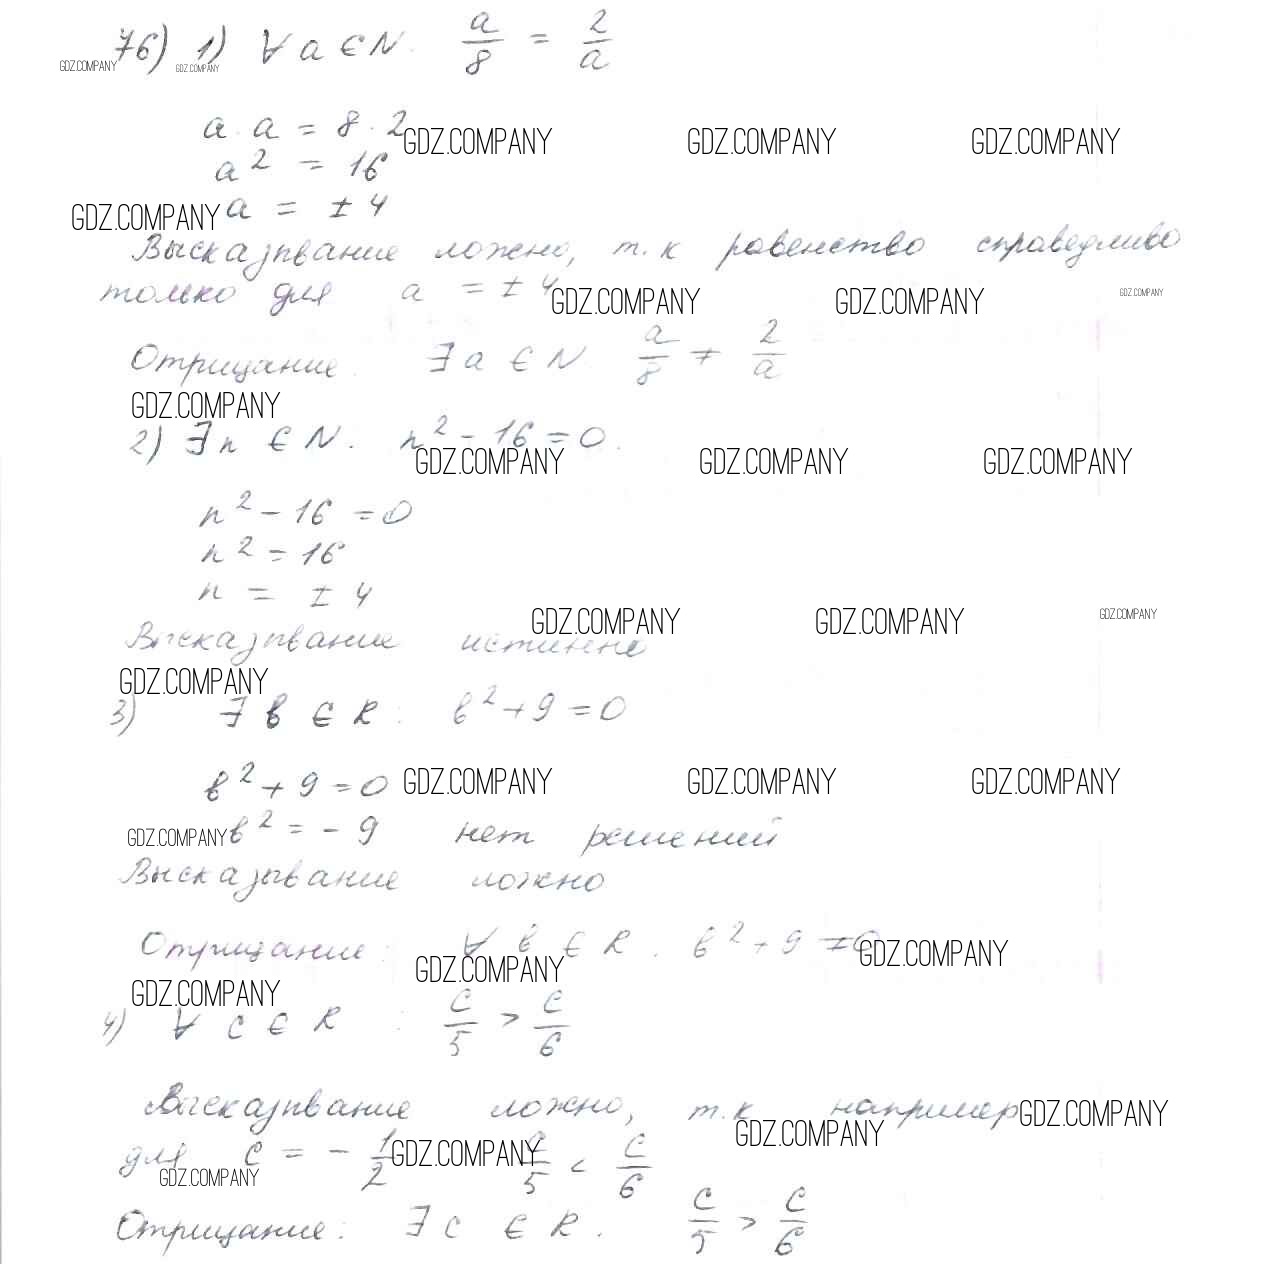 76) 1) ∀ a ∈ N. a/8 = 2/a
GDZ.COMPANY GDZ.COMPANY
a · a = 8 · 2
GDZ.COMPANY GDZ.COMPANY GDZ.COMPANY
a² = 16
GDZ.COMPANY a = ± 4
Высказывание ложно, т.к равенство справедливо
только для a = ± 4
GDZ.COMPANY GDZ.COMPANY GDZ.COMPANY
Отрицание. ∃ a ∈ N. a/8 ≠ 2/a
GDZ.COMPANY
2) ∃ n ∈ N. n² - 16 = 0.
GDZ.COMPANY GDZ.COMPANY GDZ.COMPANY
n² - 16 = 0
n² = 16
n = ± 4
GDZ.COMPANY GDZ.COMPANY GDZ.COMPANY
Высказывание истинно
GDZ.COMPANY
3) ∃ в ∈ R : в² + 9 = 0
в² + 9 = 0 GDZ.COMPANY GDZ.COMPANY GDZ.COMPANY
GDZ.COMPANY в² = - 9 нет решений
Высказывание ложно
Отрицание: ∀ в ∈ R. в² + 9 ≠ 0 GDZ.COMPANY
GDZ.COMPANY
GDZ.COMPANY
4) ∀ c ∈ R : c/5 > c/6
Высказывание ложно, т.к например GDZ.COMPANY
GDZ.COMPANY
для c = - 1/2 GDZ.COMPANY c/5 < c/6
GDZ.COMPANY
Отрицание: ∃ c ∈ R. c/5 > c/6